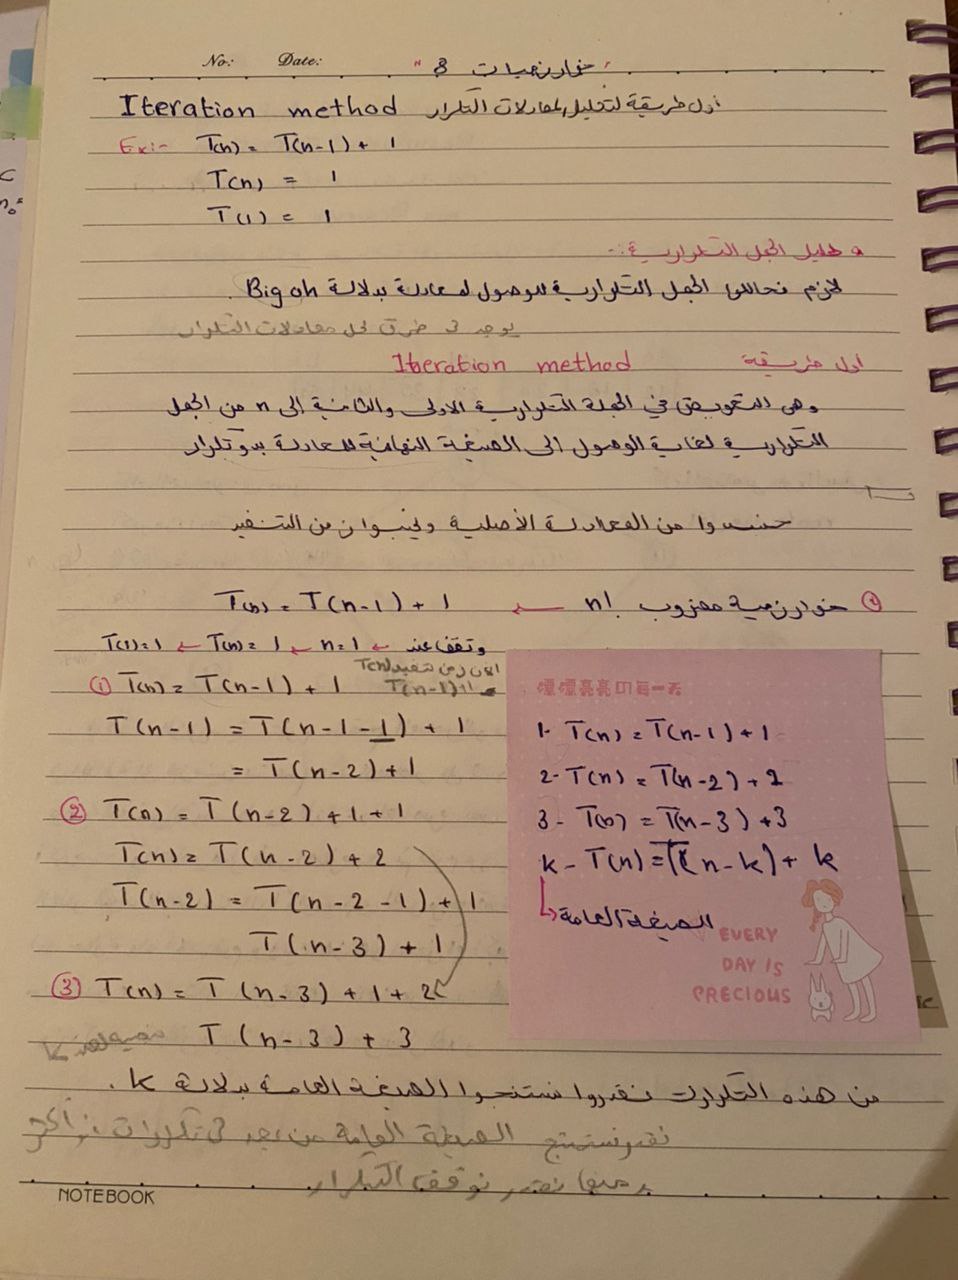 No: Date: "خوارزميات 3"
Iteration method أول طريقة لتحليل لمعادلات التكرار
Ex:- T(n) = T(n-1) + 1
T(n) = 1
T(1) = 1
تحليل الجمل التكرارية :-
لازم نحللوا الجمل التكرارية للوصول لمعادلة بدلالة Big oh .
يوجد 3 طرق لحل معادلات التكرار
اول طريقة Iteration method
وهي التعويض في الجملة التكرارية الاولى والثانية إلى n من الجمل
التكرارية لغاية الوصول الى الصيغة النهائية للمعادلة بدو تكرار
من المعادلة الأصلية من التنفيذ
خوارزمية مضروب n! ← T(n) = T(n-1) + 1
وتقف عند ← n=1 ← T(n)=1 ← T(1)=1
الآن زمن تنفيذ T(n)
T(n-1)+1
① T(n) = T(n-1) + 1
T(n-1) = T(n-1-1) + 1
= T(n-2)+1
② T(n) = T(n-2) +1 +1
T(n) = T(n-2) + 2
T(n-2) = T(n-2-1) + 1
T(n-3) + 1
③ T(n) = T(n-3) + 1 + 2
T(n-3) + 3
漂漂亮亮的每一天
1- T(n) = T(n-1) + 1
2- T(n) = T(n-2) + 2
3- T(n) = T(n-3) + 3
k- T(n) = T(n-k) + k
الصيغة العامة
EVERY
DAY IS
PRECIOUS
من هذه التكرارات نقدروا نستنتجوا الصيغة العامة بدلالة k .
نقدر نستنتج الصيغة العامة من بعد 3 تكرارات
نوقف التكرار
NOTEBOOK